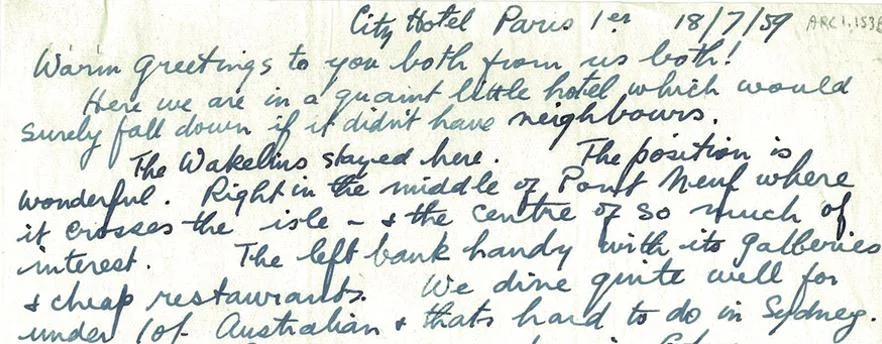 City Hotel Paris 1er 18/7/59 ARC1.153
Warm greetings to you both from us both!
Here we are in a quaint little hotel which would
surely fall down if it didn't have neighbours.
The Wakelins stayed here. The position is
wonderful. Right in the middle of Pont Neuf where
it crosses the isle - & the centre of so much of
interest. The left bank handy with its galleries
& cheap restaurants. We dine quite well for
under Australian & thats hard to do in Sydney.